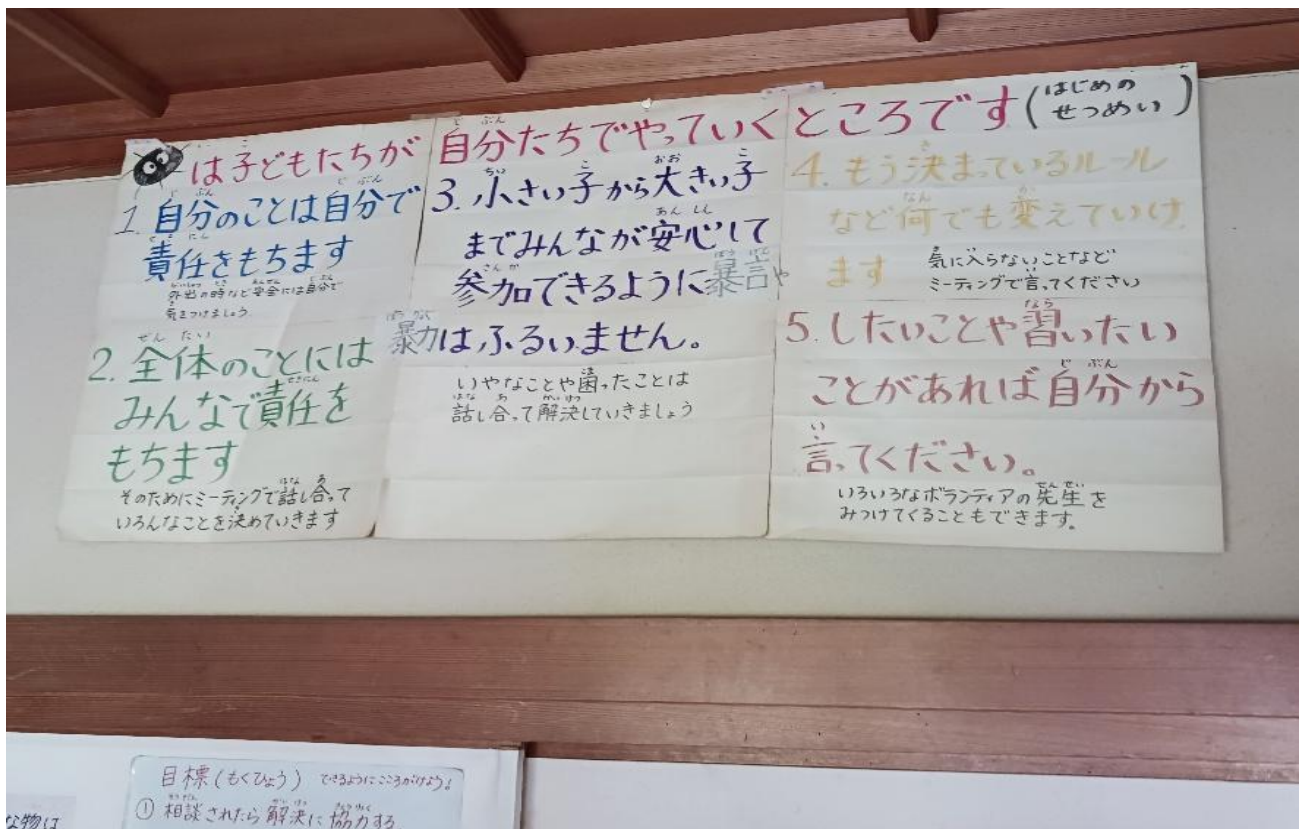 は子どもたちが自分たちでやっていくところです(はじめのせつめい)
1. 自分のことは自分で
責任をもちます
外出の時など安全には自分で
気をつけましょう
2. 全体のことには
みんなで責任を
もちます
そのためにミーティングで話し合って
いろんなことを決めていきます
3. 小さい子から大きい子
までみんなが安心して
参加できるように暴言や
暴力はふるいません。
いやなことや困ったことは
話し合って解決していきましょう
4. もう決まっているルール
など何でも変えていけ
ます
気に入らないことなど
ミーティングで言ってください
5. したいことや習いたい
ことがあれば自分から
言ってください。
いろいろなボランティアの先生を
みつけてくることもできます。
目標(もくひょう) できるようにこころがけよう!
① 相談されたら解決に協力する
な物は